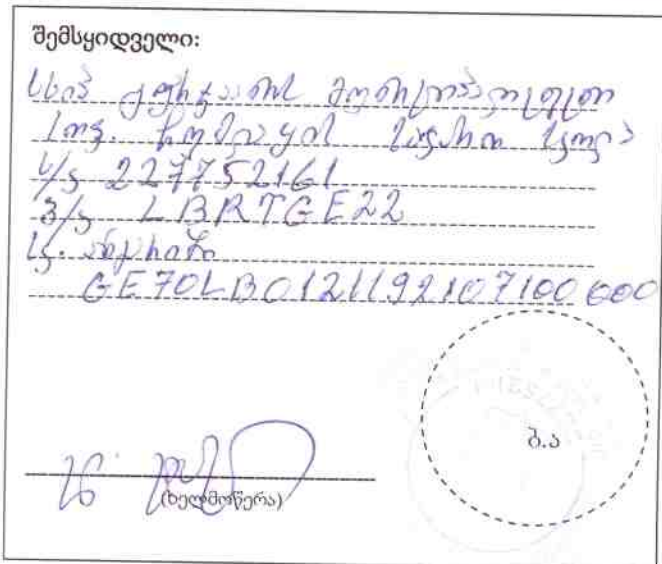 შემსყიდველი:
სსიპ ქედის მუნიციპალიტეტის
სოფ. საჯარო სკოლა
ს/კ 227752161
ბ/კ LBRTGE22
ს. ანგარიში
GE70LB0121192107100000
ბ.ა
(ხელმოწერა)